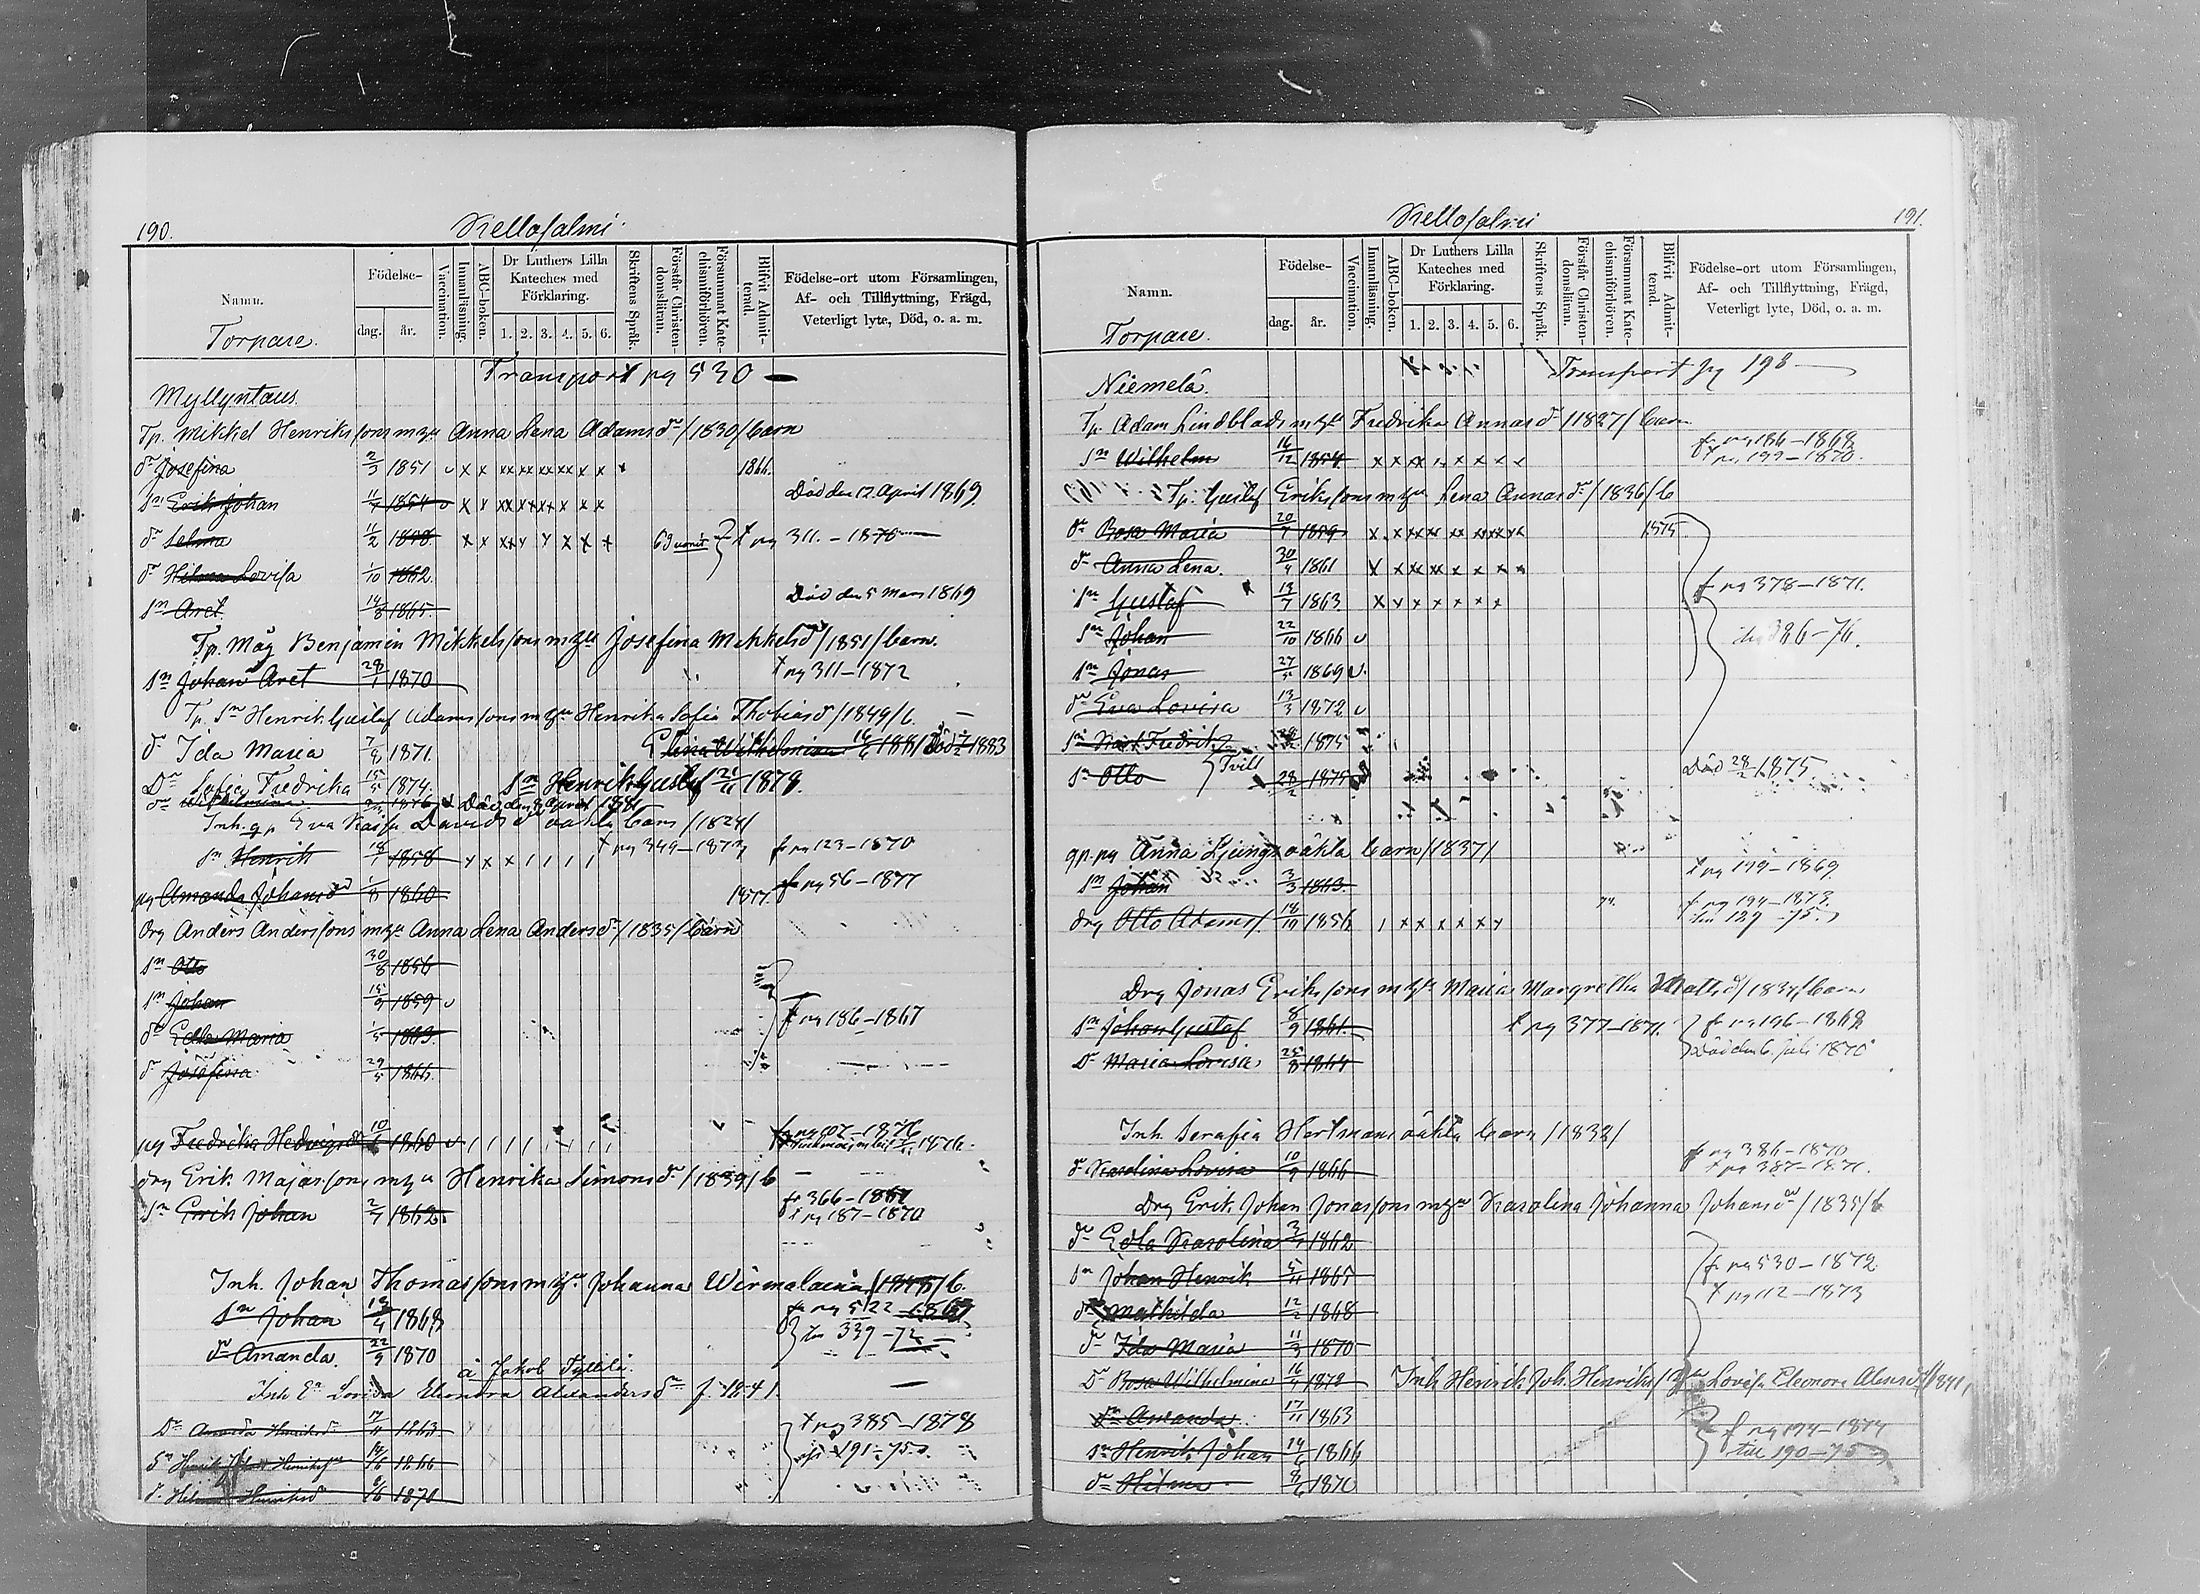 190.
Kellosalmi
Namn.
Födelse-
dag. år.
Vaccination.
Innanläsning.
ABC-boken.
Dr Luthers Lilla Kateches med Förklaring.
1. 2. 3. 4. 5. 6.
Skriftens Språk.
Förstår Christendomsläran.
Försummat Katechismiförhören.
Blifvit Admitterad.
Födelse-ort utom Församlingen,
Af- och Tillflyttning, Frägd,
Veterligt lyte, Död, o. a. m.
Torpare.
Transport pg 530
Myllyntaus.
Tp. Mikkel Henriksson m hu Anna Lena Adamsdr /1830/ barn
dr Josefina 2/3 1851 v x x xx xx xx xx x x x 1866.
sn Erik Johan 11/7 1854 Död den 12 April 1869.
dr Selma 11/2 1858. t pg 311. - 1870
dr Hilma Lovisa 1/10 1862.
sn Aret 14/8 1865. Död den 5 Mars 1869
Tp. Måg Benjamin Mikkelsson m hu Josefina Mikkelsdr /1851/ barn.
sn Johan Aret 28/1 1870 t pg 311-1872
Tp. Sn Henrik Gustaf Adamsson m hu Henrika Sofia Thobiasdr /1849/ b.
dr Ida Maria 7/8 1871. Elina Wilhelmina 16/6 1881 Död 1883
Dr Sofia Fredrika 15/5 1874. Sn Henrik Gustaf 21/11 1878.
dr Wilhelmina 1876 Död den 8 April 1881
Inh. Eva Kaisa Davidsdr oäkta barn /1824/
sn Henrik 18/1 1858 x x x t pg 349-1872 fr pg 123-1870
pg Amanda Johansdr 1/8 1860 1877. fr pg 56-1877
Drg Anders Andersson m hu Anna Lena Andersdr /1835/ barn
sn Otto 30/8 1856
sn Johan 15/9 1859 v
dr Edla Maria 1/5 1863. t pg 186-1867
dr Josefina 29/5 1866.
pg Fredrika Hedvig 10/6 1860 v fr pg 107-1876
drg Erik Majasson m hu Henrika Simonsdr /1839/ b
sn Erik Johan 2/7 1862. fr 366-1869
t pg 187-1870
Inh. Johan Thomasson m hu Johanna Wirmalainen /1848/ b.
sn Johan 1868 fr pg 522 1869
till 339-72
dr Amanda. 22/9 1870
à Jakob Tyllilä.
Inh En Lovisa Eleonora Alexandersdr f. 1841.
Dr Amanda Henriksdr 17/11 1863 t pg 385-1878
Sn Henrik Johan Henriksson 14/6 1866 från 191-75.
dr Hilma Henriksdr 8/6 1870
191.
Kellosalmi
Namn.
Födelse-
dag. år.
Vaccination.
Innanläsning.
ABC-boken.
Dr Luthers Lilla Kateches med Förklaring.
1. 2. 3. 4. 5. 6.
Skriftens Språk.
Förstår Christendomsläran.
Försummat Katechismiförhören.
Blifvit Admitterad.
Födelse-ort utom Församlingen,
Af- och Tillflyttning, Frägd,
Veterligt lyte, Död, o. a. m.
Torpare.
Transport pg 198
Niemelä.
Tp. Adam Lindblad m hu Fredrika Annasdr /1827/ barn
sn Wilhelm 16/12 1854 fr pg 186-1868
t pg 199-1870.
Tp. Gustaf Eriksson m hu Lena Annasdr /1836/ b
dr Rosa Maria 20/7 1859 1875.
dr Anna Lena. 30/4 1861
sn Gustaf 13/7 1863 t pg 378-1871.
sn Johan 22/10 1866 v 326-76.
sn Jonas 27/5 1869 v.
dr Eva Lovisa 13/3 1872 v
sn Karl Fredrik 28/2 1875
sn Otto Tvill 28/2 1875 Död 28/2 1875
Anna Ljung oäkta barn /1837/
sn Johan 3/3 1863. t pg 179-1869
drg Otto Adamss. 18/10 1856 t pg 194-1873.
till 129-75.
Drg Jonas Eriksson m hu Maria Margretha Mattsdr /1834/ barn
sn Johan Gustaf 8/9 1861. t pg 377-1871. fr pg 196-1868
dr Maria Lovisa 25/8 1864 Död den 6. Juli 1870
Inh. Serafia Hertman oäkta barn /1832/
dr Karolina Lovisa 10/9 1866 fr pg 386-1870
t pg 387-1871.
Drg Erik Johan Jonasson m hu Karolina Johanna Johansdr /1835/ b
dr Edla Karolina 1862
sn Johan Henrik 5/11 1865 fr pg 530-1872
t pg 112-1873
dr Mathilda 12/2 1868
dr Ida Maria 11/3 1870
Dr Rosa Wilhelmina 16/4 1872 Inh Henrik Joh. Henriks. / Lovisa Eleonora /1841/
dr Amanda 17/11 1863
sn Henrik Johan 14/6 1866 f pg 194-1874
till 190-75
dr Hilma 8/6 1870